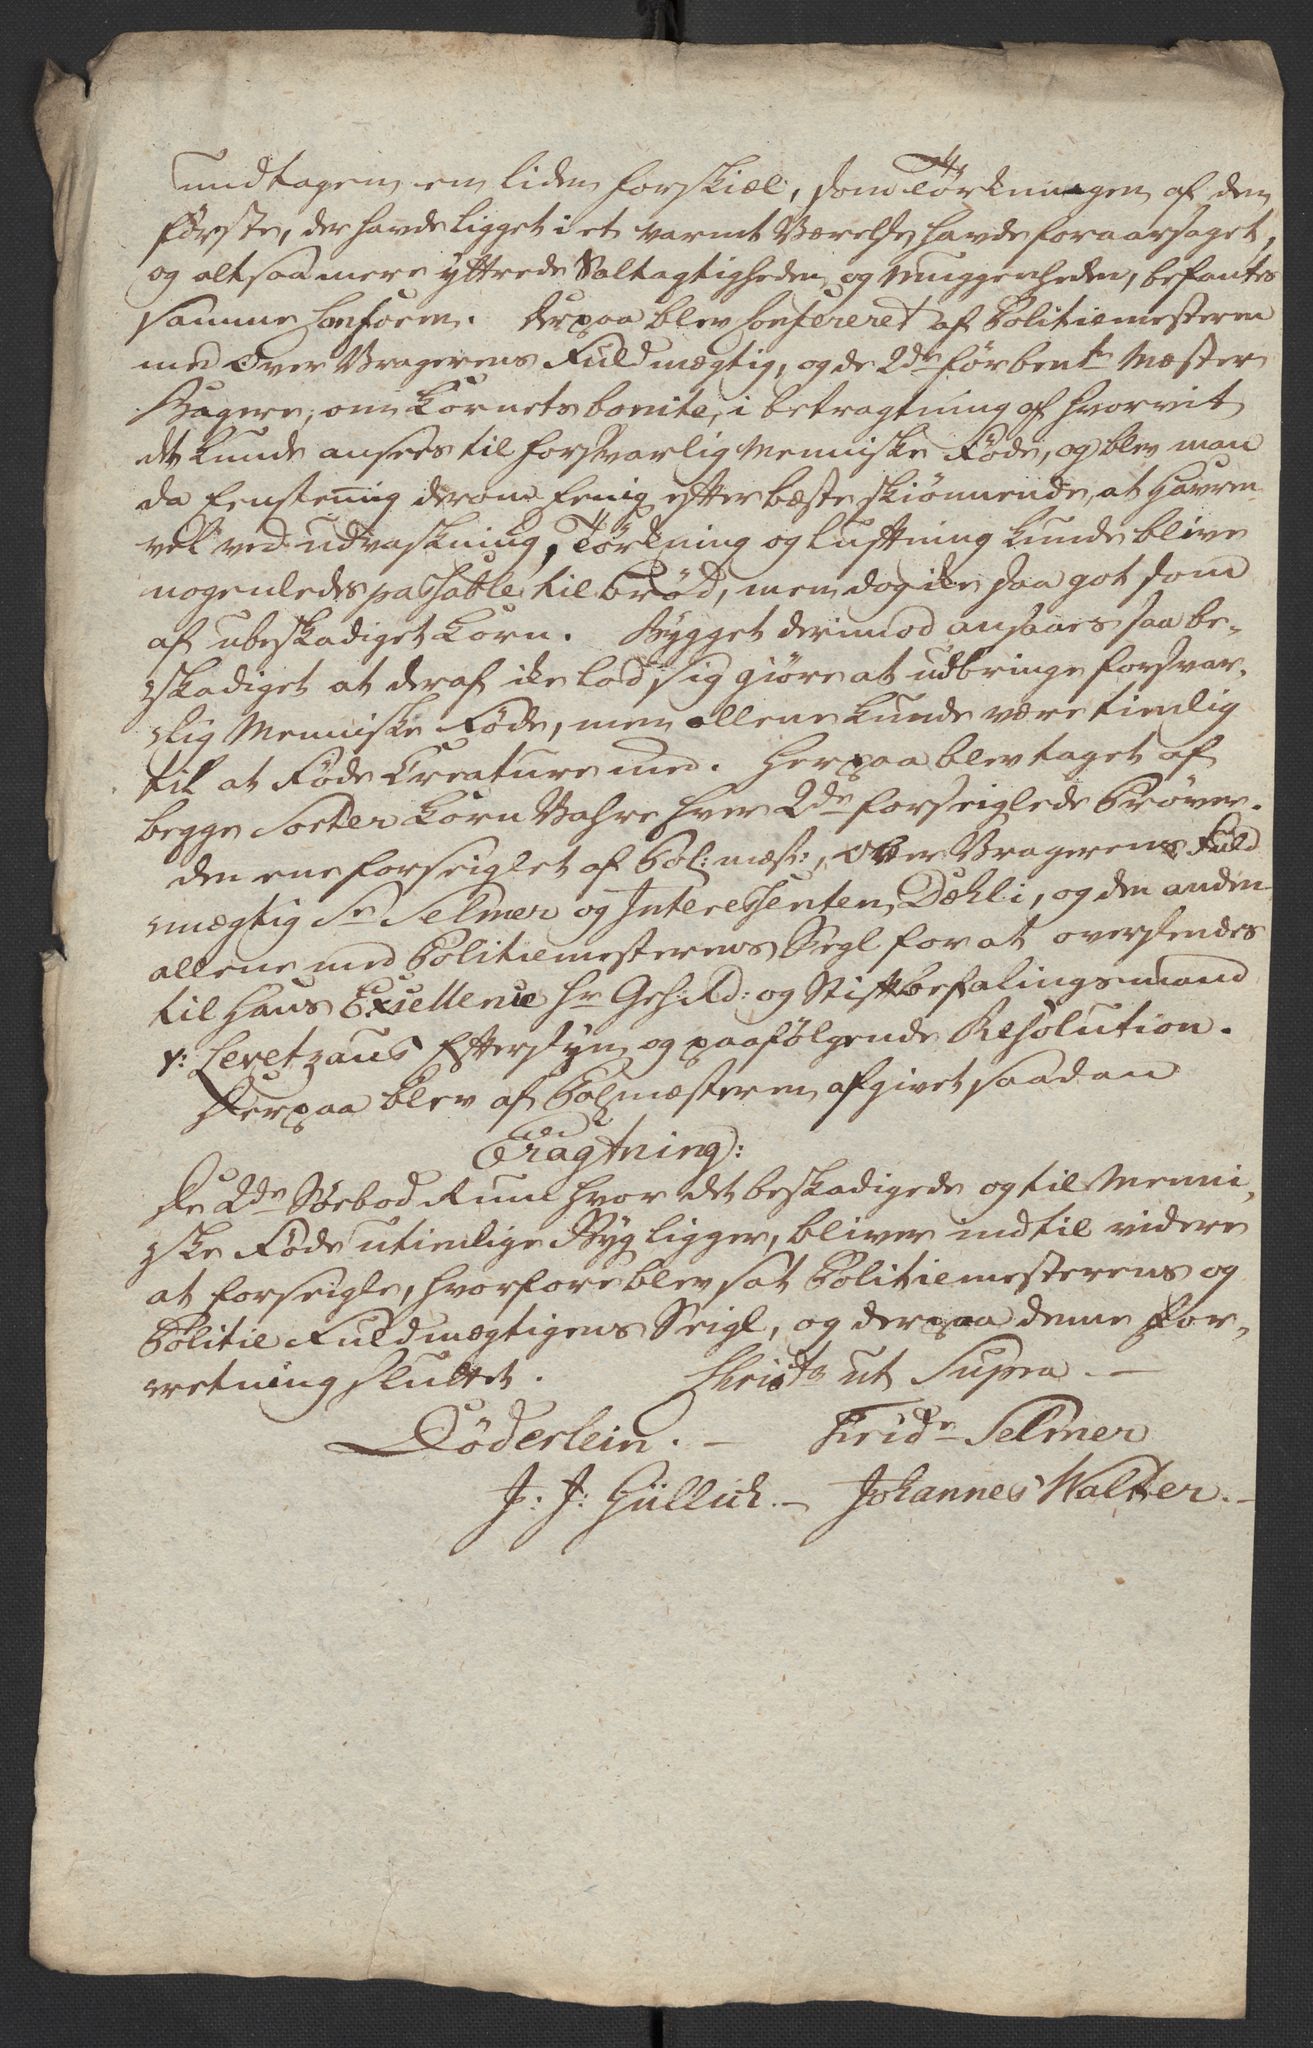 undtagen en liden forskiæl, som Tørkningen af den
første, der havde ligget i et varmt Værelse havde foraarsaget,
og altsaa mere yttrede Saltagtigheden og muggenheden, befantes
samme Conform. Derpaa blev Confereret af Politiemesteren
med Over Vragerens Fuldmægtig, og de 2de førbente Mæster
Bagere, om Kornets bonite, i betragtning af hvorvit
det kunde ansees til forsvarlig Menniske Føde, og blev man
da Eenstemig derom Eenig efter bæste skiønnende, at Havren
vel ved udvaskning, Tørkning og luftning kunde blive
nogenledes passable til brød, men dog ike saa got som
af ubeskadiget Korn. Bygget derimod ansaaes saa be-
skadiget at deraf ike lod sig giøre at udbringe forsvar-
lig Menniske Føde, men allene kunde være tienlig
til at Føde Creature med. Herpaa blev taget af
begge Sorter Korn Vahre hver 2de forseiglede Prøver.
den ene forseiglet af Pol: mæst:, Over Vragerens Fuld
mægtig Sr Selmer og Interessenten Dæhli, og den anden
allene med Politiemesterens Segl for at oversendes
til Hans Excellence Hr Geh: Rd: og Stiftbefalingsmand
v: Levetzaus Eftersyn og paafølgende Resolution.
Derpaa blev af Polmæsteren afgivet saadan
Eragtning:
De 2de Søebod Rum hvor det beskadigede og til Menni-
ske Føde utienlige Byg ligger, bliver indtil videre
at forseigle, hvorfore blev sat Politiemesterens og
Politie Fuldmægtigens Seigl, og derpaa denne For-
retning sluttet. Actum ut Supra.
Døderlein. Fridr Selmer
J: J: Güllich. Johannes Walter.